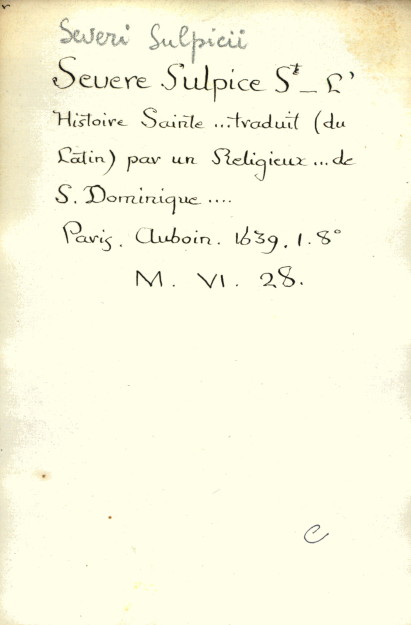 Severi Sulpicii
Severe Sulpice St_ L'
Histoire Sainte ... traduit (du
Latin) par un Religieux ... de
S. Dominique ....
Paris. Auboin. 1639. 1. 8°
M. VI. 28.
C